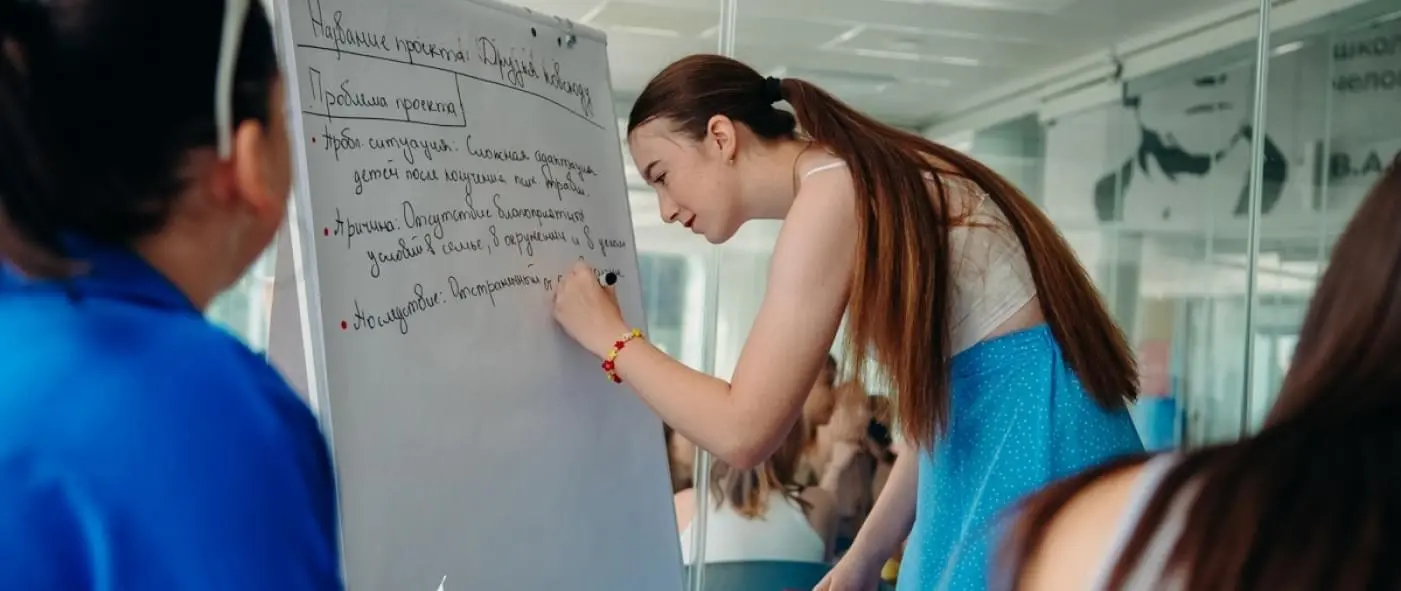 Название проекта: Друзья повсюду
Проблема проекта
• Проб. ситуация: Сложная адаптация
детей после получения псих. травм.
• Причина: Отсутствие благоприятных
условий в семье, в окружении и в целом
• Последствие: Отстранённый от
ШКОЛ
ЧЕЛО
В.А